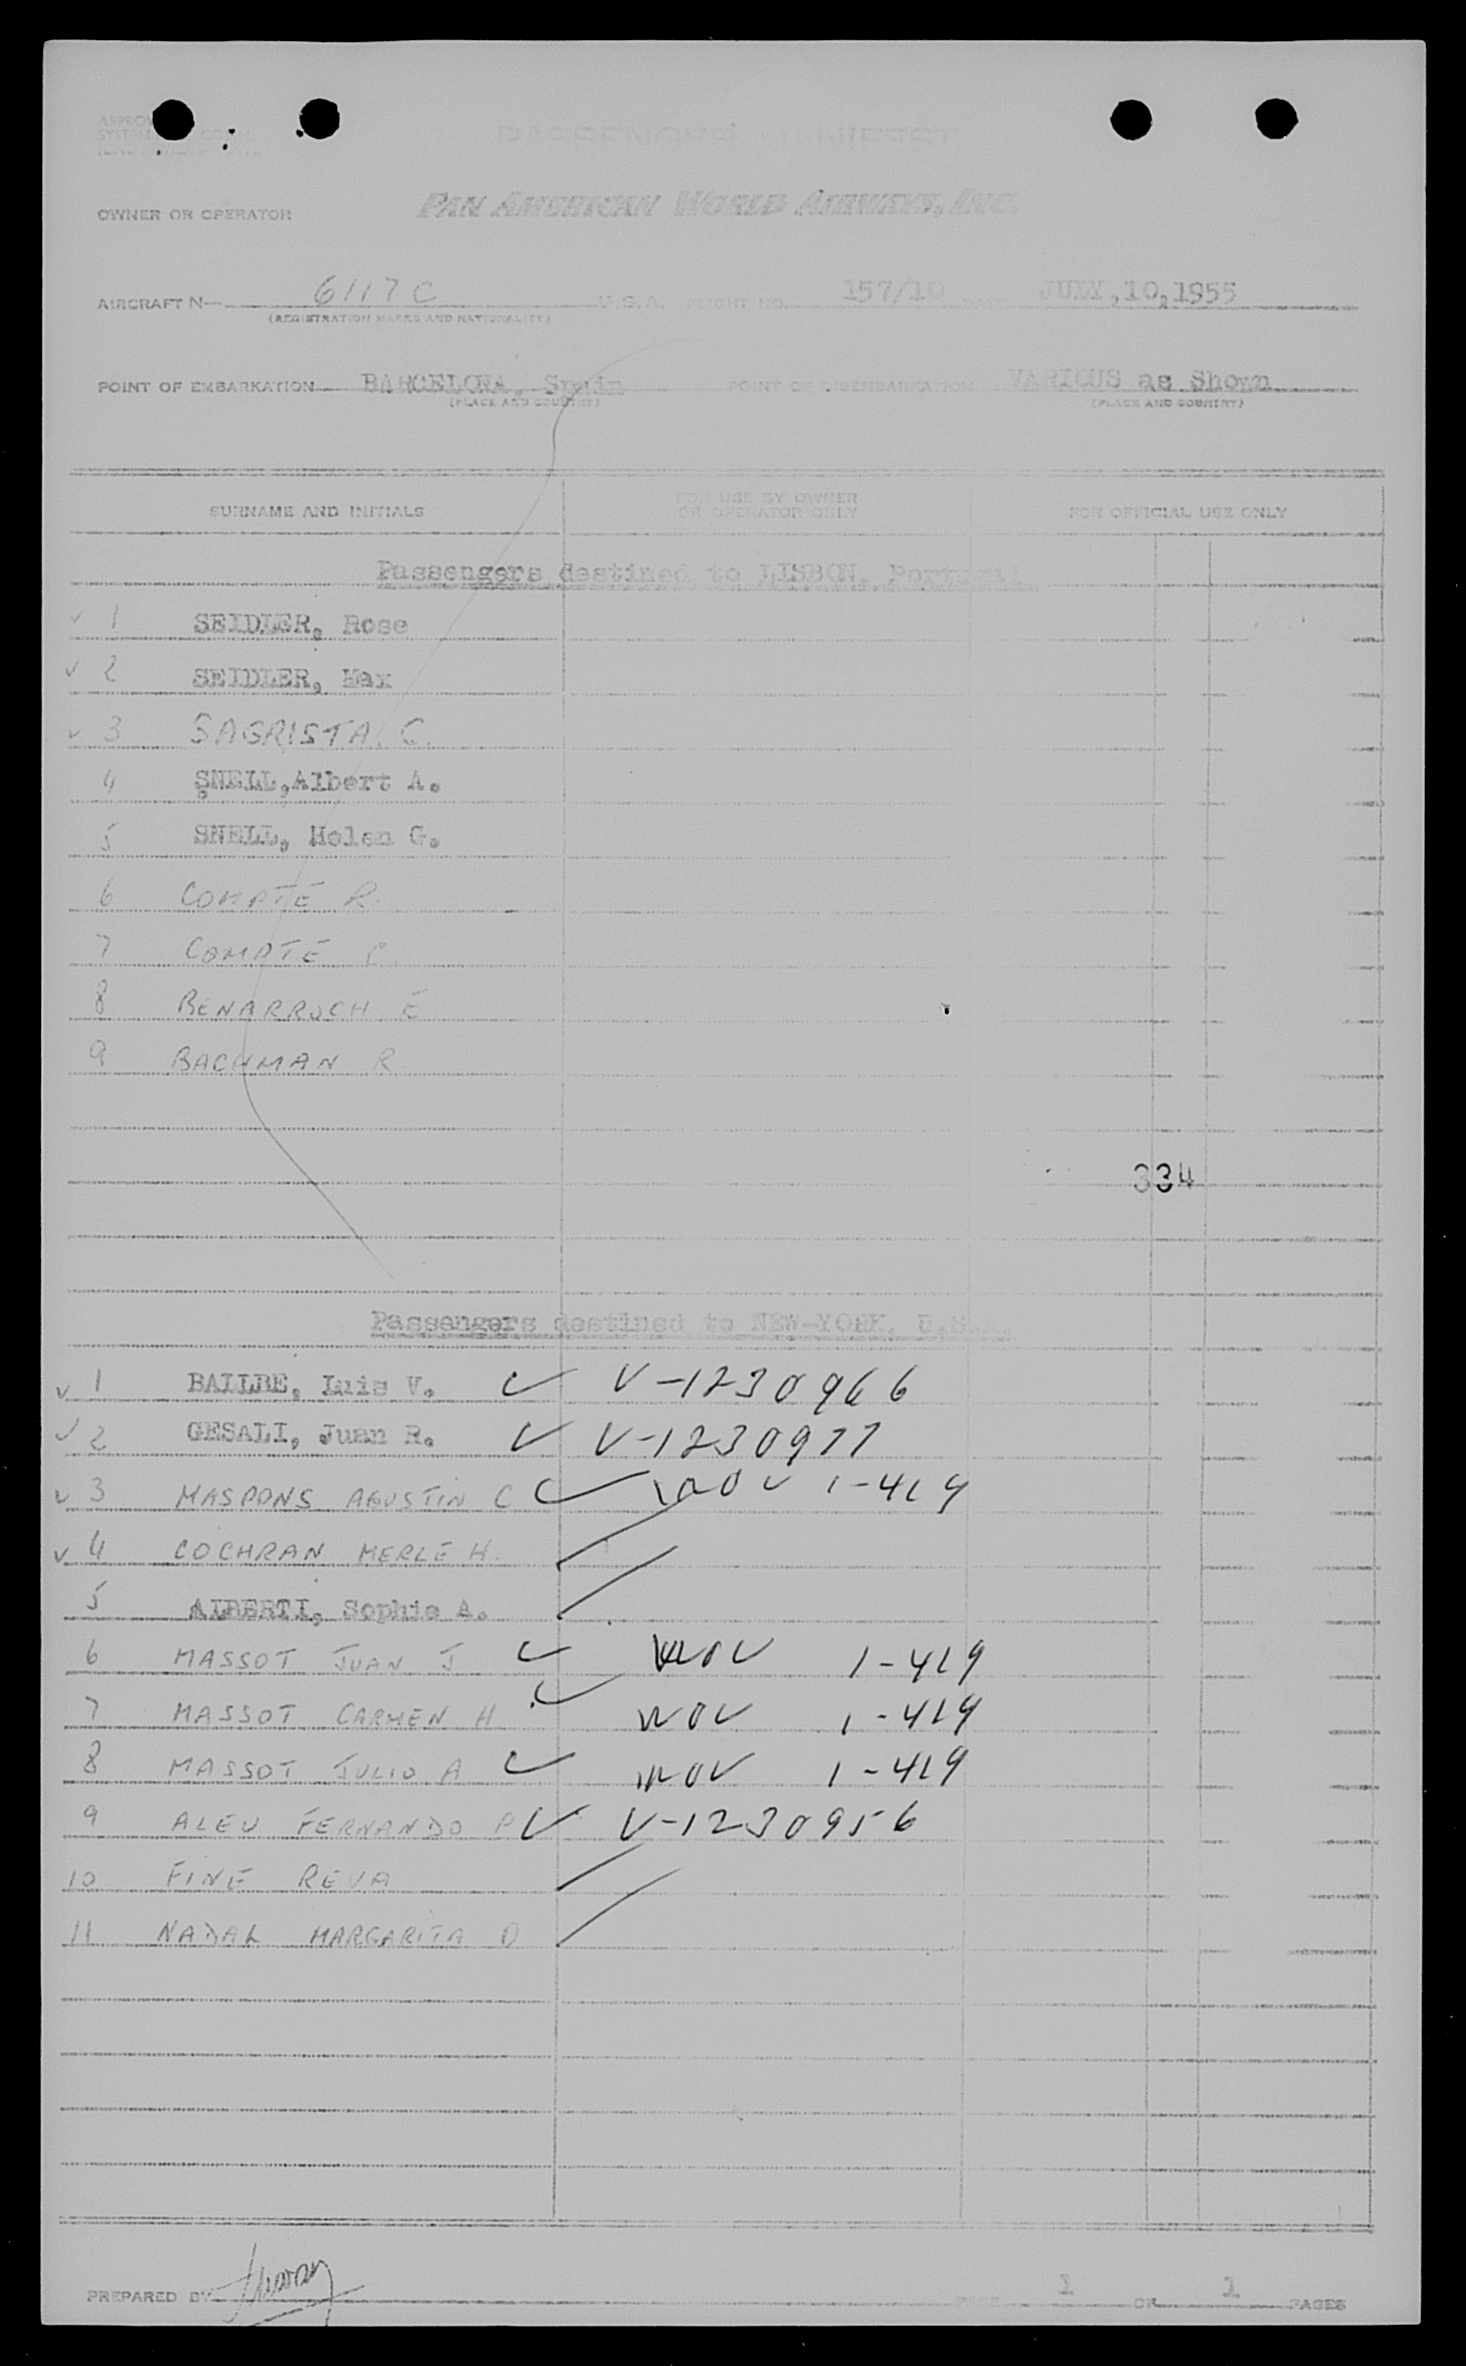 PASSENGER MANIFEST
OWNER OR OPERATOR PAN AMERICAN WORLD AIRWAYS, INC.
AIRCRAFT N— 6117C U.S.A. FLIGHT NO. 157/10 DATE JULY,10,1955
(REGISTRATION MARKS AND NATIONALITY)
POINT OF EMBARKATION BARCELONA, Spain POINT OF DISEMBARKATION VARIOUS as Shown
(PLACE AND COUNTRY) (PLACE AND COUNTRY)
SURNAME AND INITIALS FOR USE BY OWNER OR OPERATOR ONLY FOR OFFICIAL USE ONLY
Passengers destined to LISBON, Portugal
✓ 1 SEIDLER, Rose
✓ 2 SEIDLER, Max
✓ 3 SAGRISTA. C.
4 SNELL,Albert A.
5 SNELL, Helen G.
6 COMPTE R.
7 COMPTE
8 BENARROCH E
9 BACHMAN R
334
Passengers destined to NEW-YORK, U.S.A.
✓ 1 BAILBE, Luis V. ✓ V-1230966
✓ 2 GESALI, Juan R. ✓ V-1230977
✓ 3 MASPONS AGUSTIN C ✓ 1-419
✓ 4 COCHRAN MERLE H.
5 ALBERTI, Sophie A.
6 MASSOT JUAN J ✓ 1-419
7 MASSOT CARMEN H ✓ WOV 1-419
8 MASSOT JULIO A ✓ WOV 1-419
9 ALEU FERNANDO P ✓ V-1230956
10 FINE REVA
11 NADAL MARGARITA D
PREPARED BY 1 OF 1 PAGES